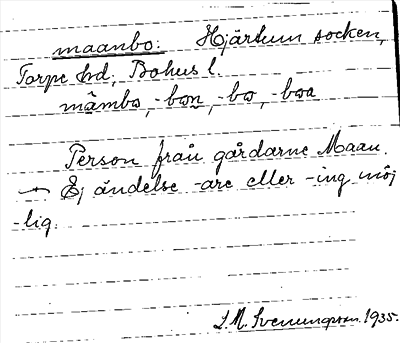 maanbo: Hjärtum socken,
Torpe hd, Bohus l.
mâmbo, -bon, -bo, -boa
Person från gårdarne Maan.
Ej ändelse -are eller -ing möj
-lig.
L.M. Svenungsson 1935.